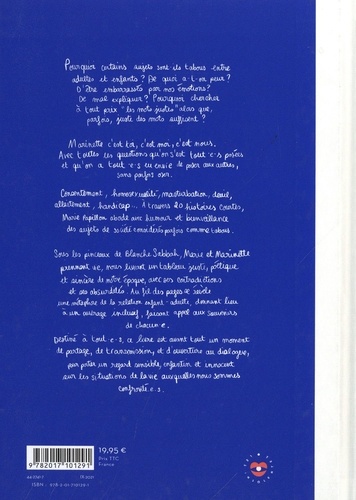 Pourquoi certains sujets sont-ils tabous entre
adultes et enfants ? De quoi a-t-on peur ?
D'être embarrassés par nos émotions ?
De mal expliquer ? Pourquoi chercher
à tout prix "les mots justes" alors que,
parfois, juste des mots suffisent ?
Marinette c'est toi, c'est moi, c'est nous.
Avec toutes ces questions qu'on s'est tout·e·s posées
et qu'on a tout·e·s eu envie de poser aux autres,
sans parfois oser.
Consentement, homosexualité, masturbation, deuil,
allaitement, handicap... À travers 20 histoires courtes,
Marie Papillon aborde avec humour et bienveillance
des sujets de société considérés parfois comme tabous.
Sous les pinceaux de Blanche Sabbah, Marie et Marinette
prennent vie, nous livrent un tableau juste, poétique
et sincère de notre époque, avec ses contradictions
et ses absurdités. Au fil des pages se tisse
une métaphore de la relation enfant-adulte, donnant lieu
à un ouvrage intuitif, faisant appel aux souvenirs
de chacun·e.
Destiné à tout·e·s, ce livre est avant tout un moment
de partage, de transmission, et d'ouverture au dialogue,
pour poser un regard sensible, enfantin et innocent
sur les situations de la vie auxquelles nous sommes
confronté·e·s.
19,95 €
Prix TTC
France
9782017101291